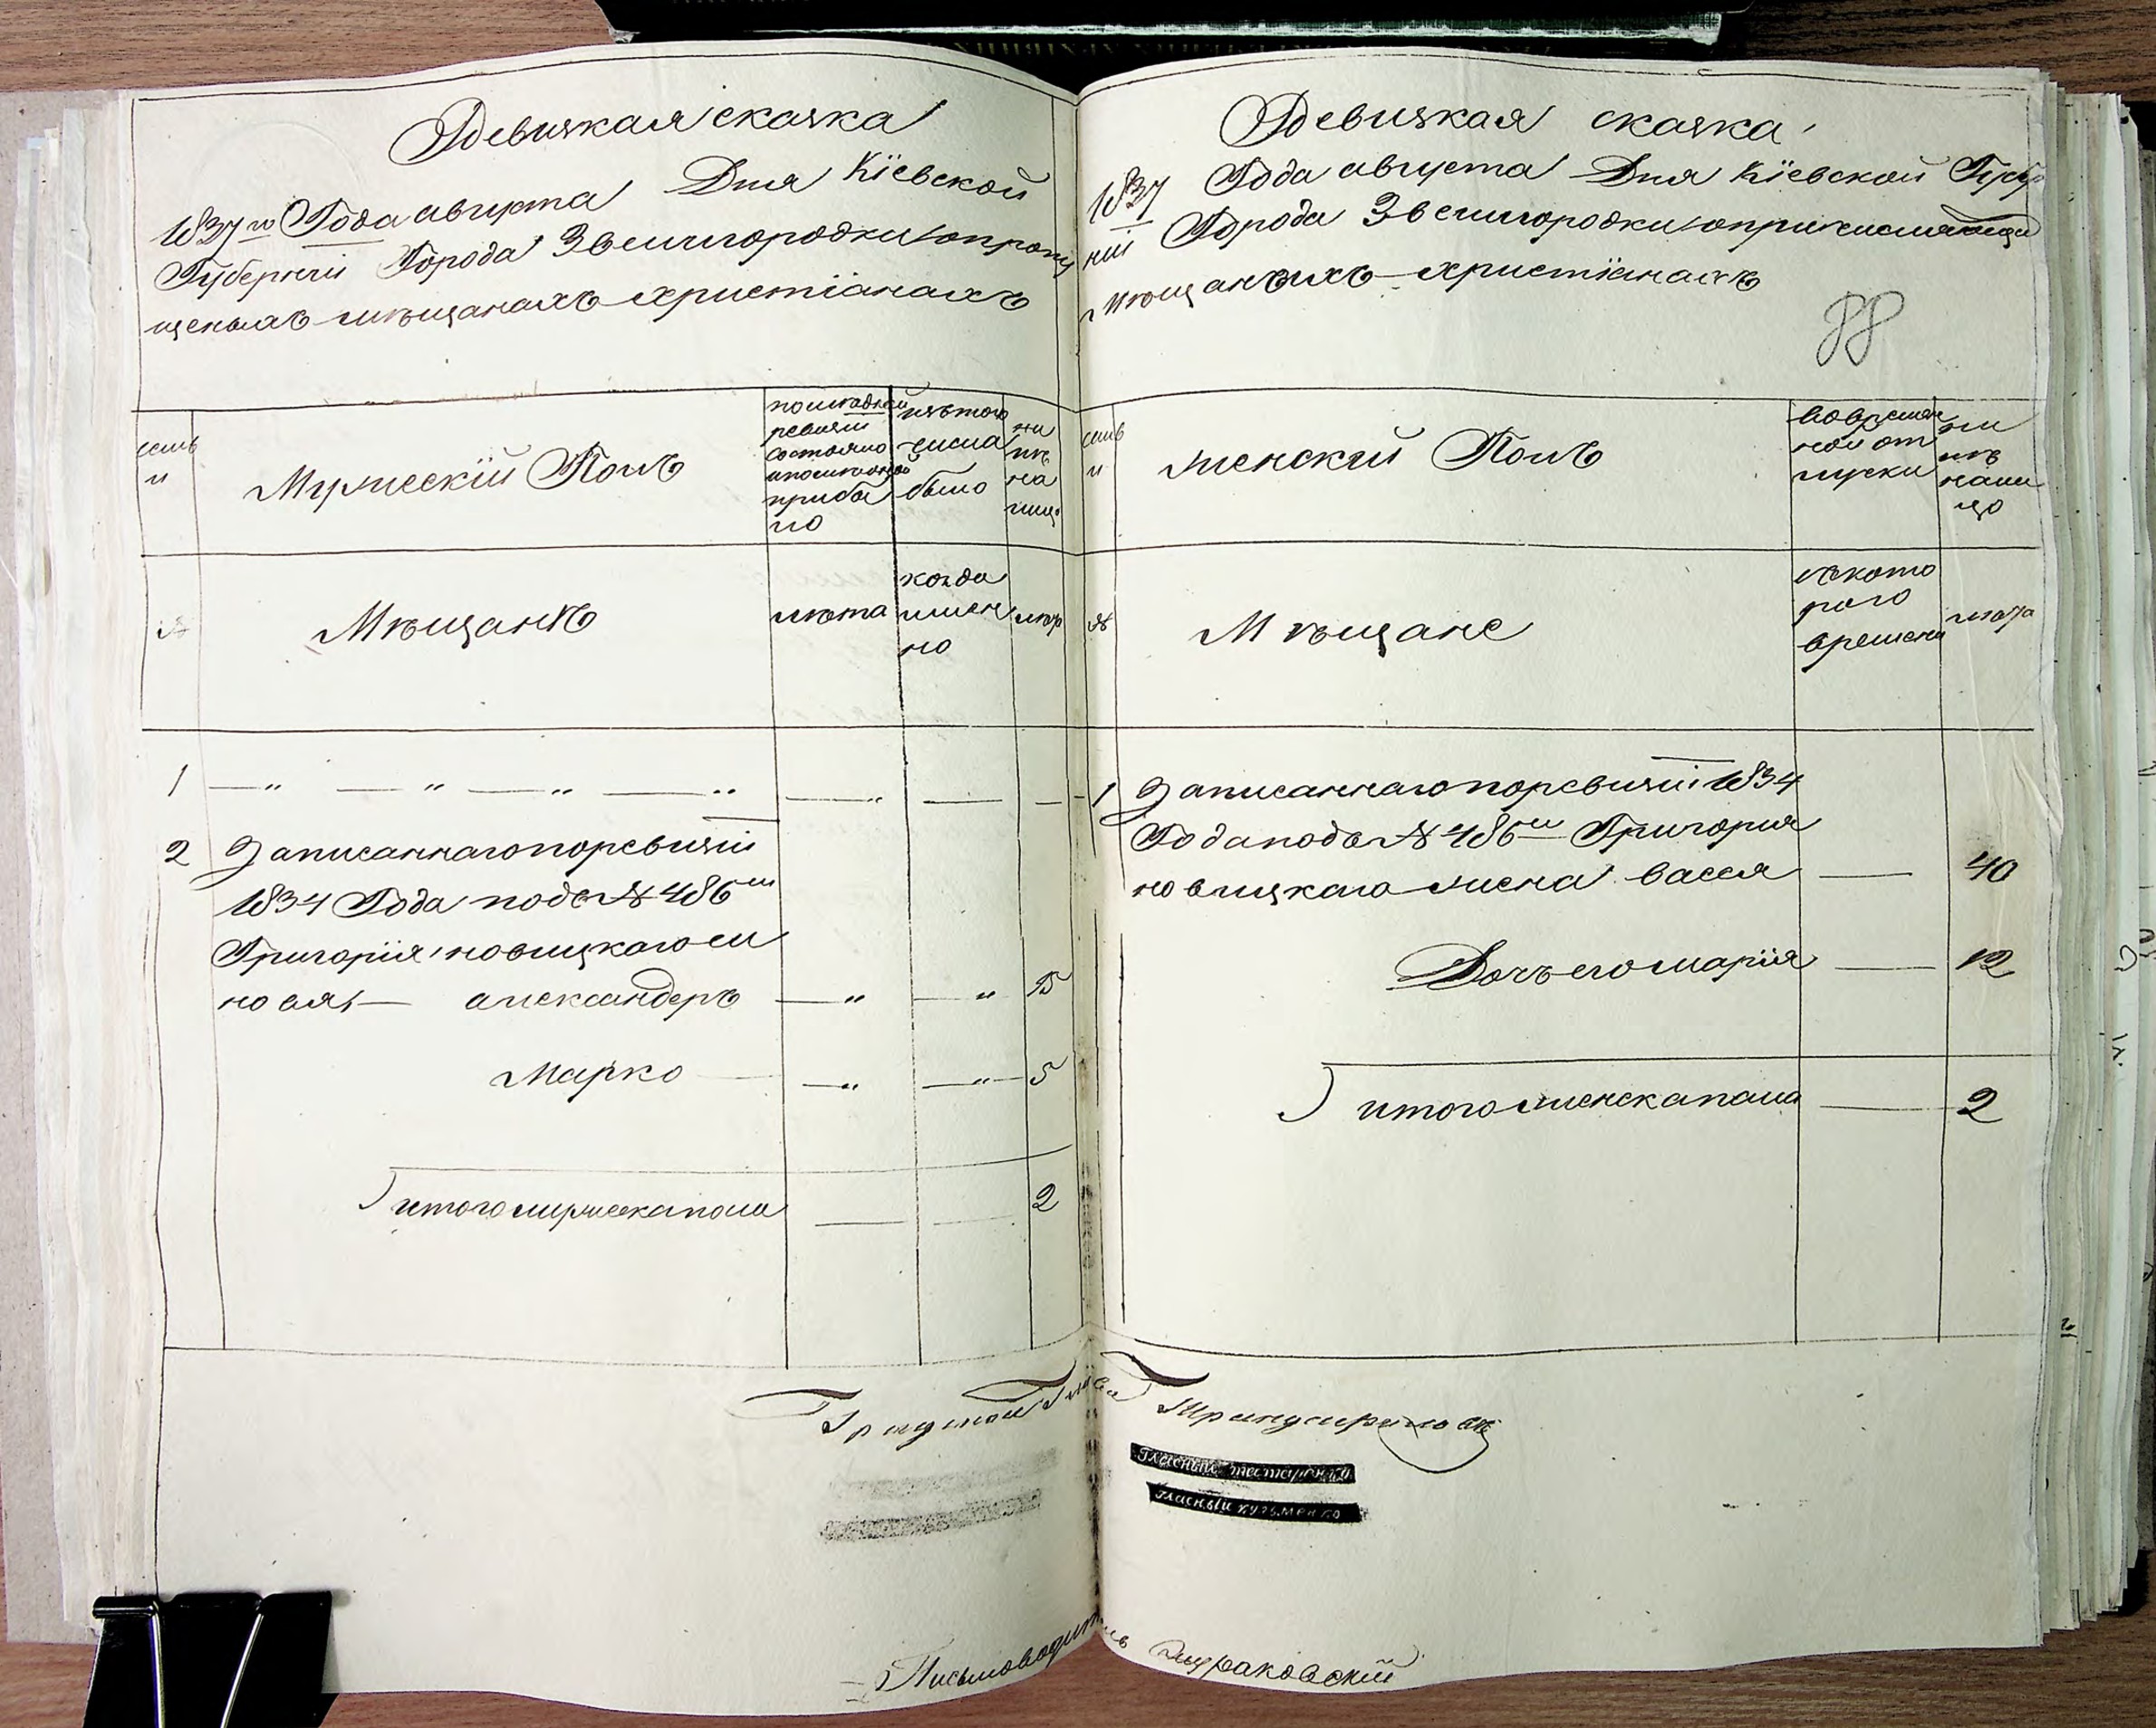 Ревизкая сказка
1837го Года августа Дня Кіевской
Губерніи Города Звенигородки опропу
щеныхъ мѣщанахъ христіанахъ
семь
и
Мужескій Полъ
последней
ревизіи
состояло
ипослеоной
прибы
ло
изътого
числа
было
ны
не
на
лицо
№
Мѣщанъ
лѣта
когда
имен
но
лѣта
1
2 Записаннаго поревизіи
1834 Года подъ № 486м
Григорія новицкаго си
новя, александеръ 15
Марко 5
итого мужеска пола 2
Градской Глава
Письмоводитель
Ревизкая сказка
1837 Года августа Дня Кіевской Губер
ніи Города Звенигородки
мѣщанахъ христіанахъ
88
семь
и
женскій Полъ
вовремен
ной от
лучки
ны
не
нали
цо
№
Мѣщане
ското
раго
времени
лѣта
1 Записаннаго поревизіи 1834
Года подъ № 486м Григория
новицкаго жена васся 40
Дочь его марія 12
итого женска пола 2
Гласный татаренко
гласный кузьменко